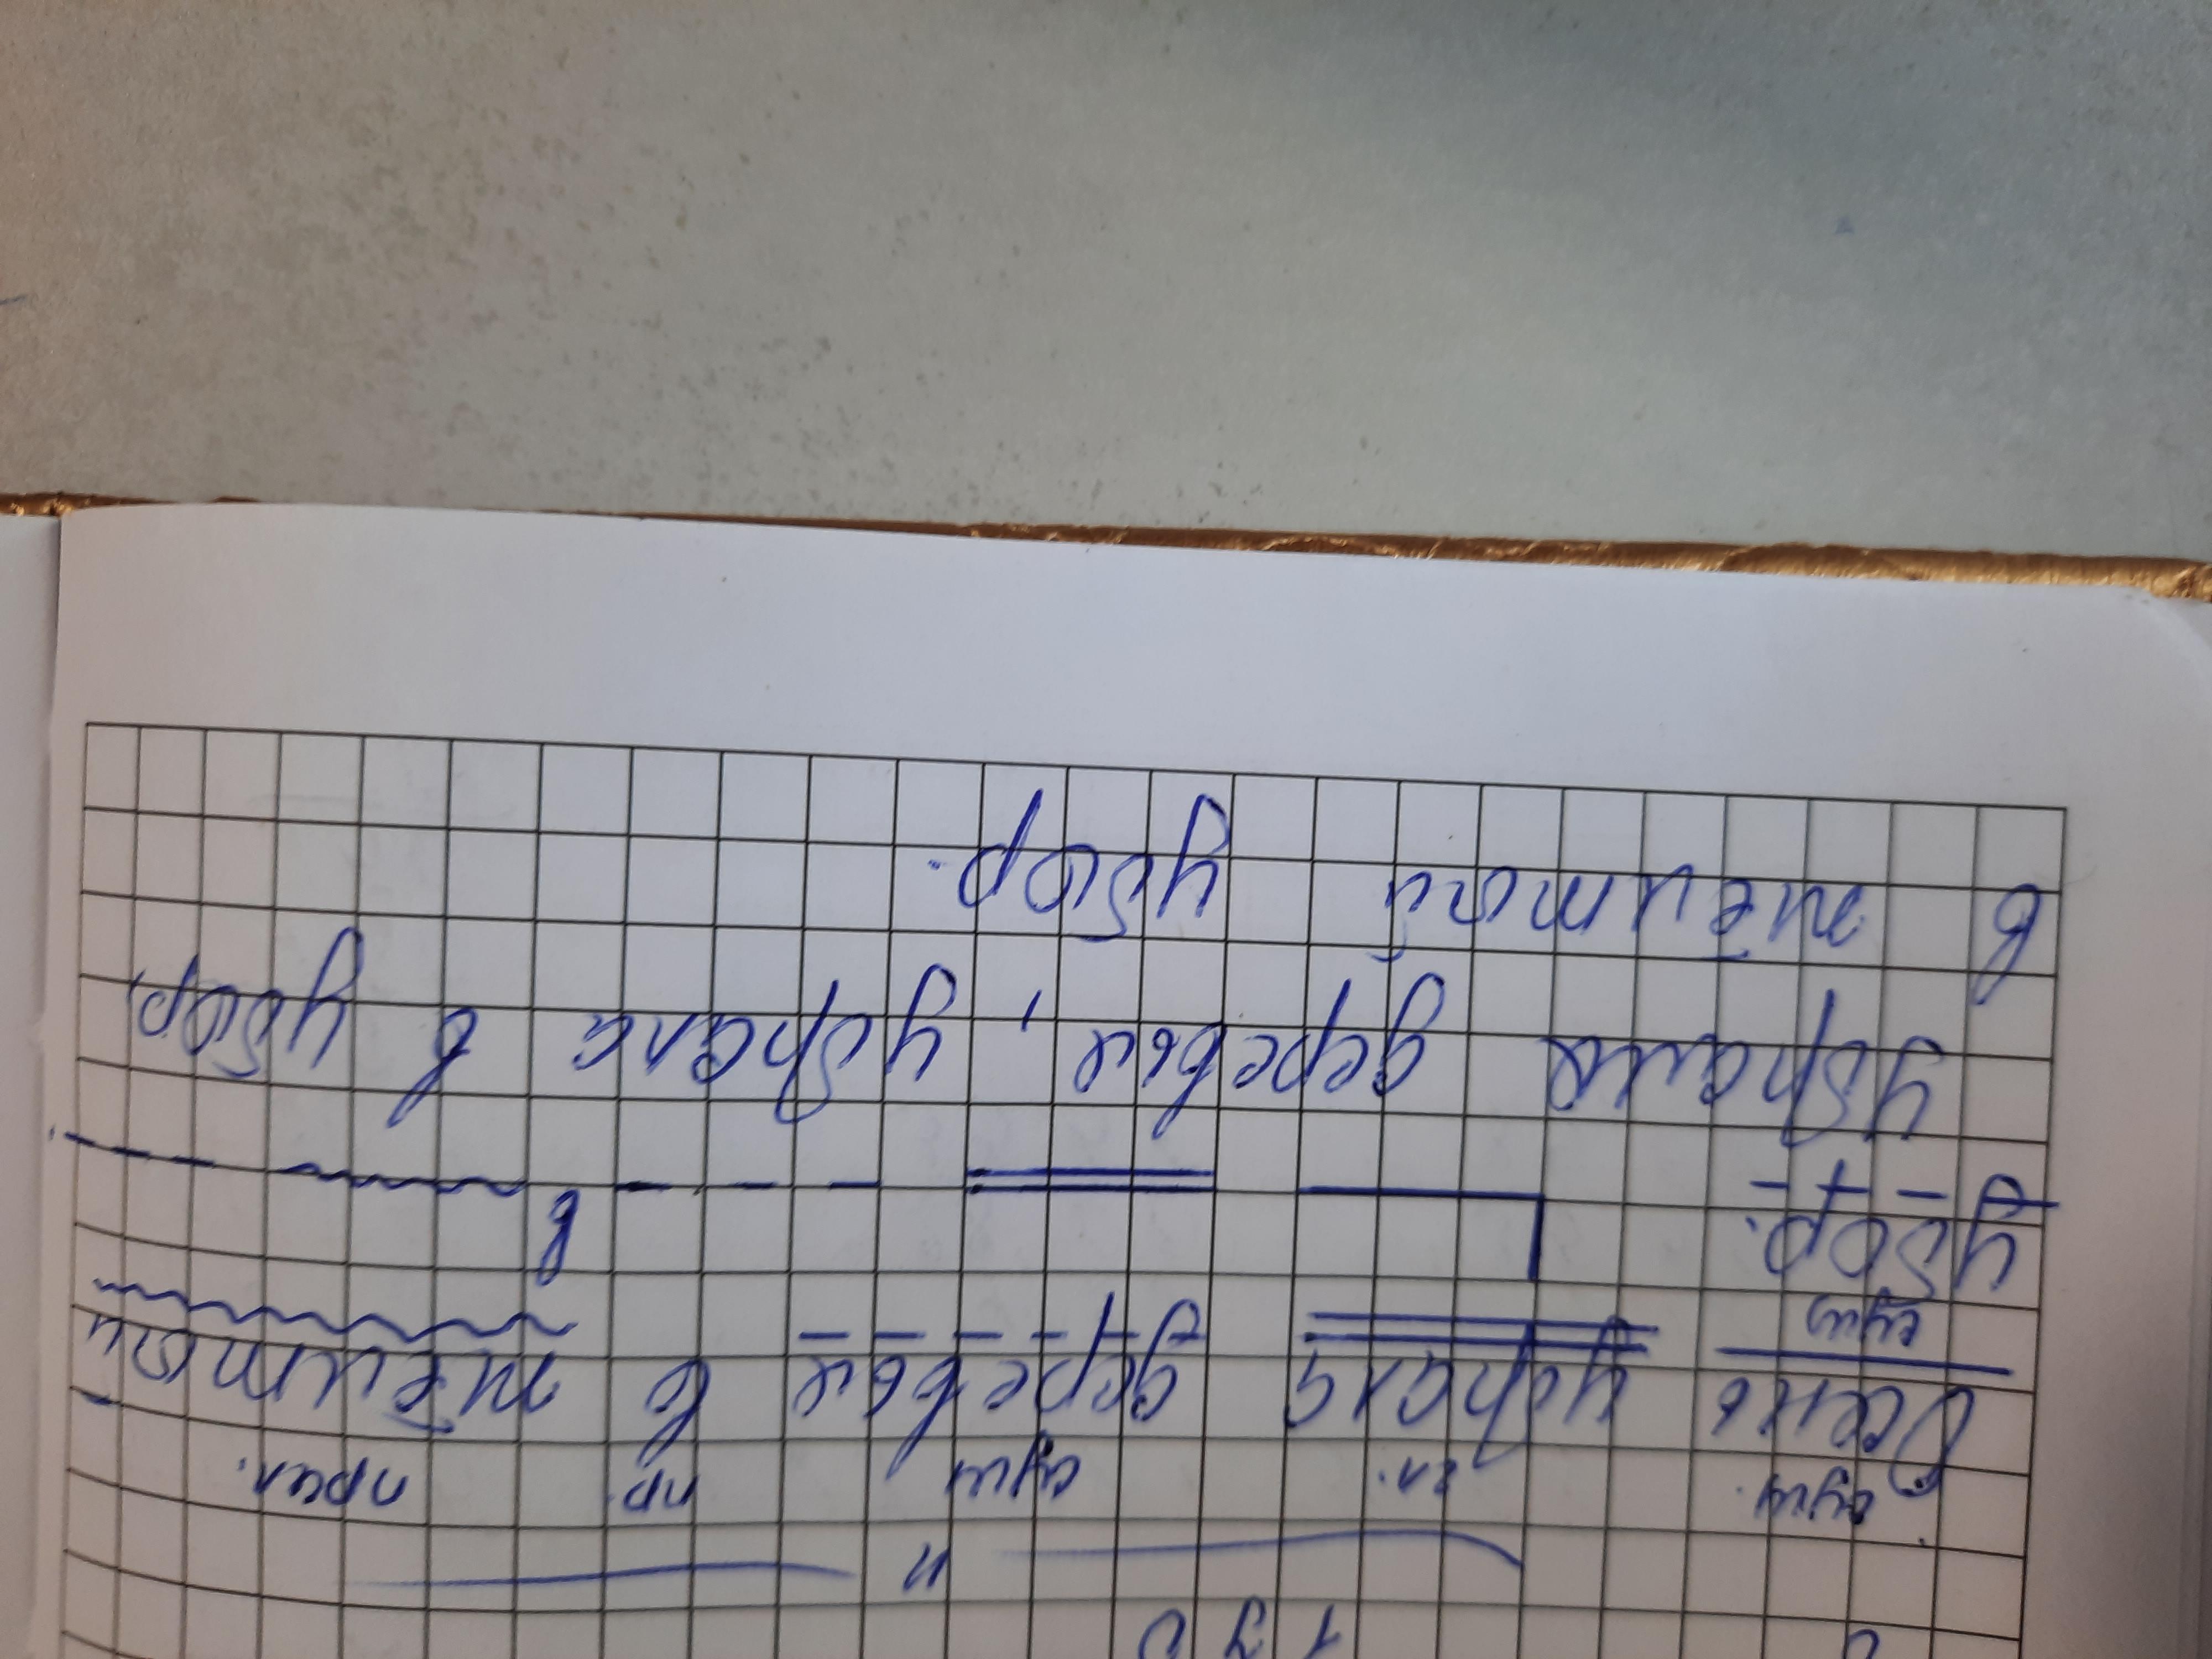 сущ. гл. сущ пр. прил.
Осень убрала деревья в жёлтый
сущ
убор. в
убрала деревья, убрала в убор,
в жёлтый убор.